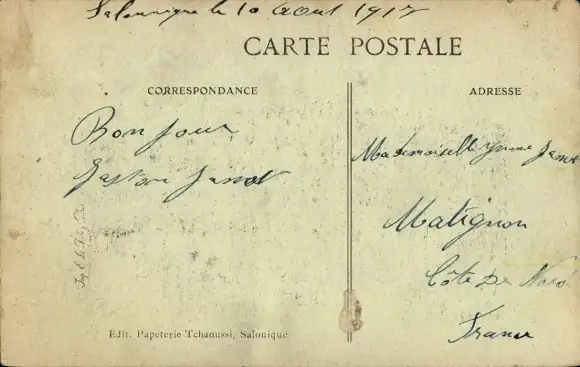 Salonique le 10 Aout 1917
CARTE POSTALE
CORRESPONDANCE
Bonjour
Gaston Janot
ADRESSE
Mademoiselle Yvonne Janot
Matignon
Côte Du Nord
France
Edit. Papeterie Tchaoussi, Salonique